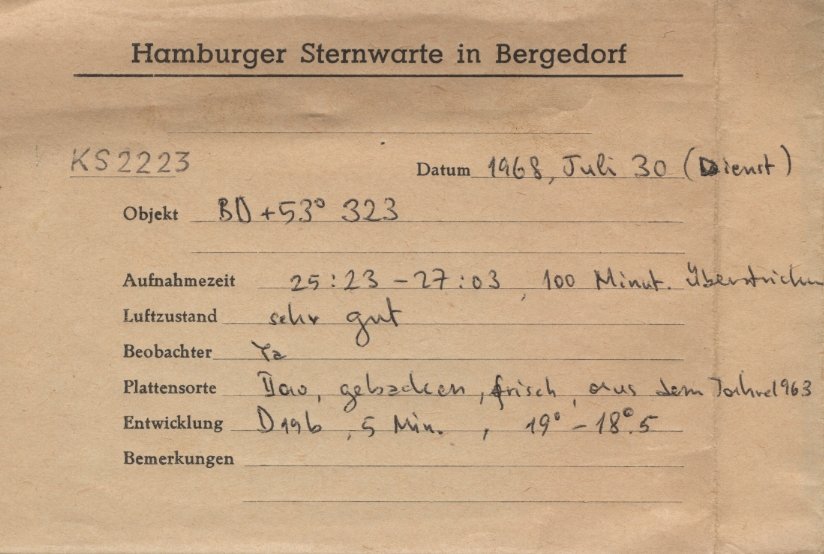 Hamburger Sternwarte in Bergedorf
KS2223 Datum 1968, Juli 30 (Dienst)
Objekt BD +53° 323
Aufnahmezeit 25:23 - 27:03, 100 Minut. Überstrichen
Luftzustand sehr gut
Beobachter
Plattensorte IIao, gebacken, frisch, aus dem Jahre 1963
Entwicklung D19b, 5 Min., 19° - 18°.5
Bemerkungen